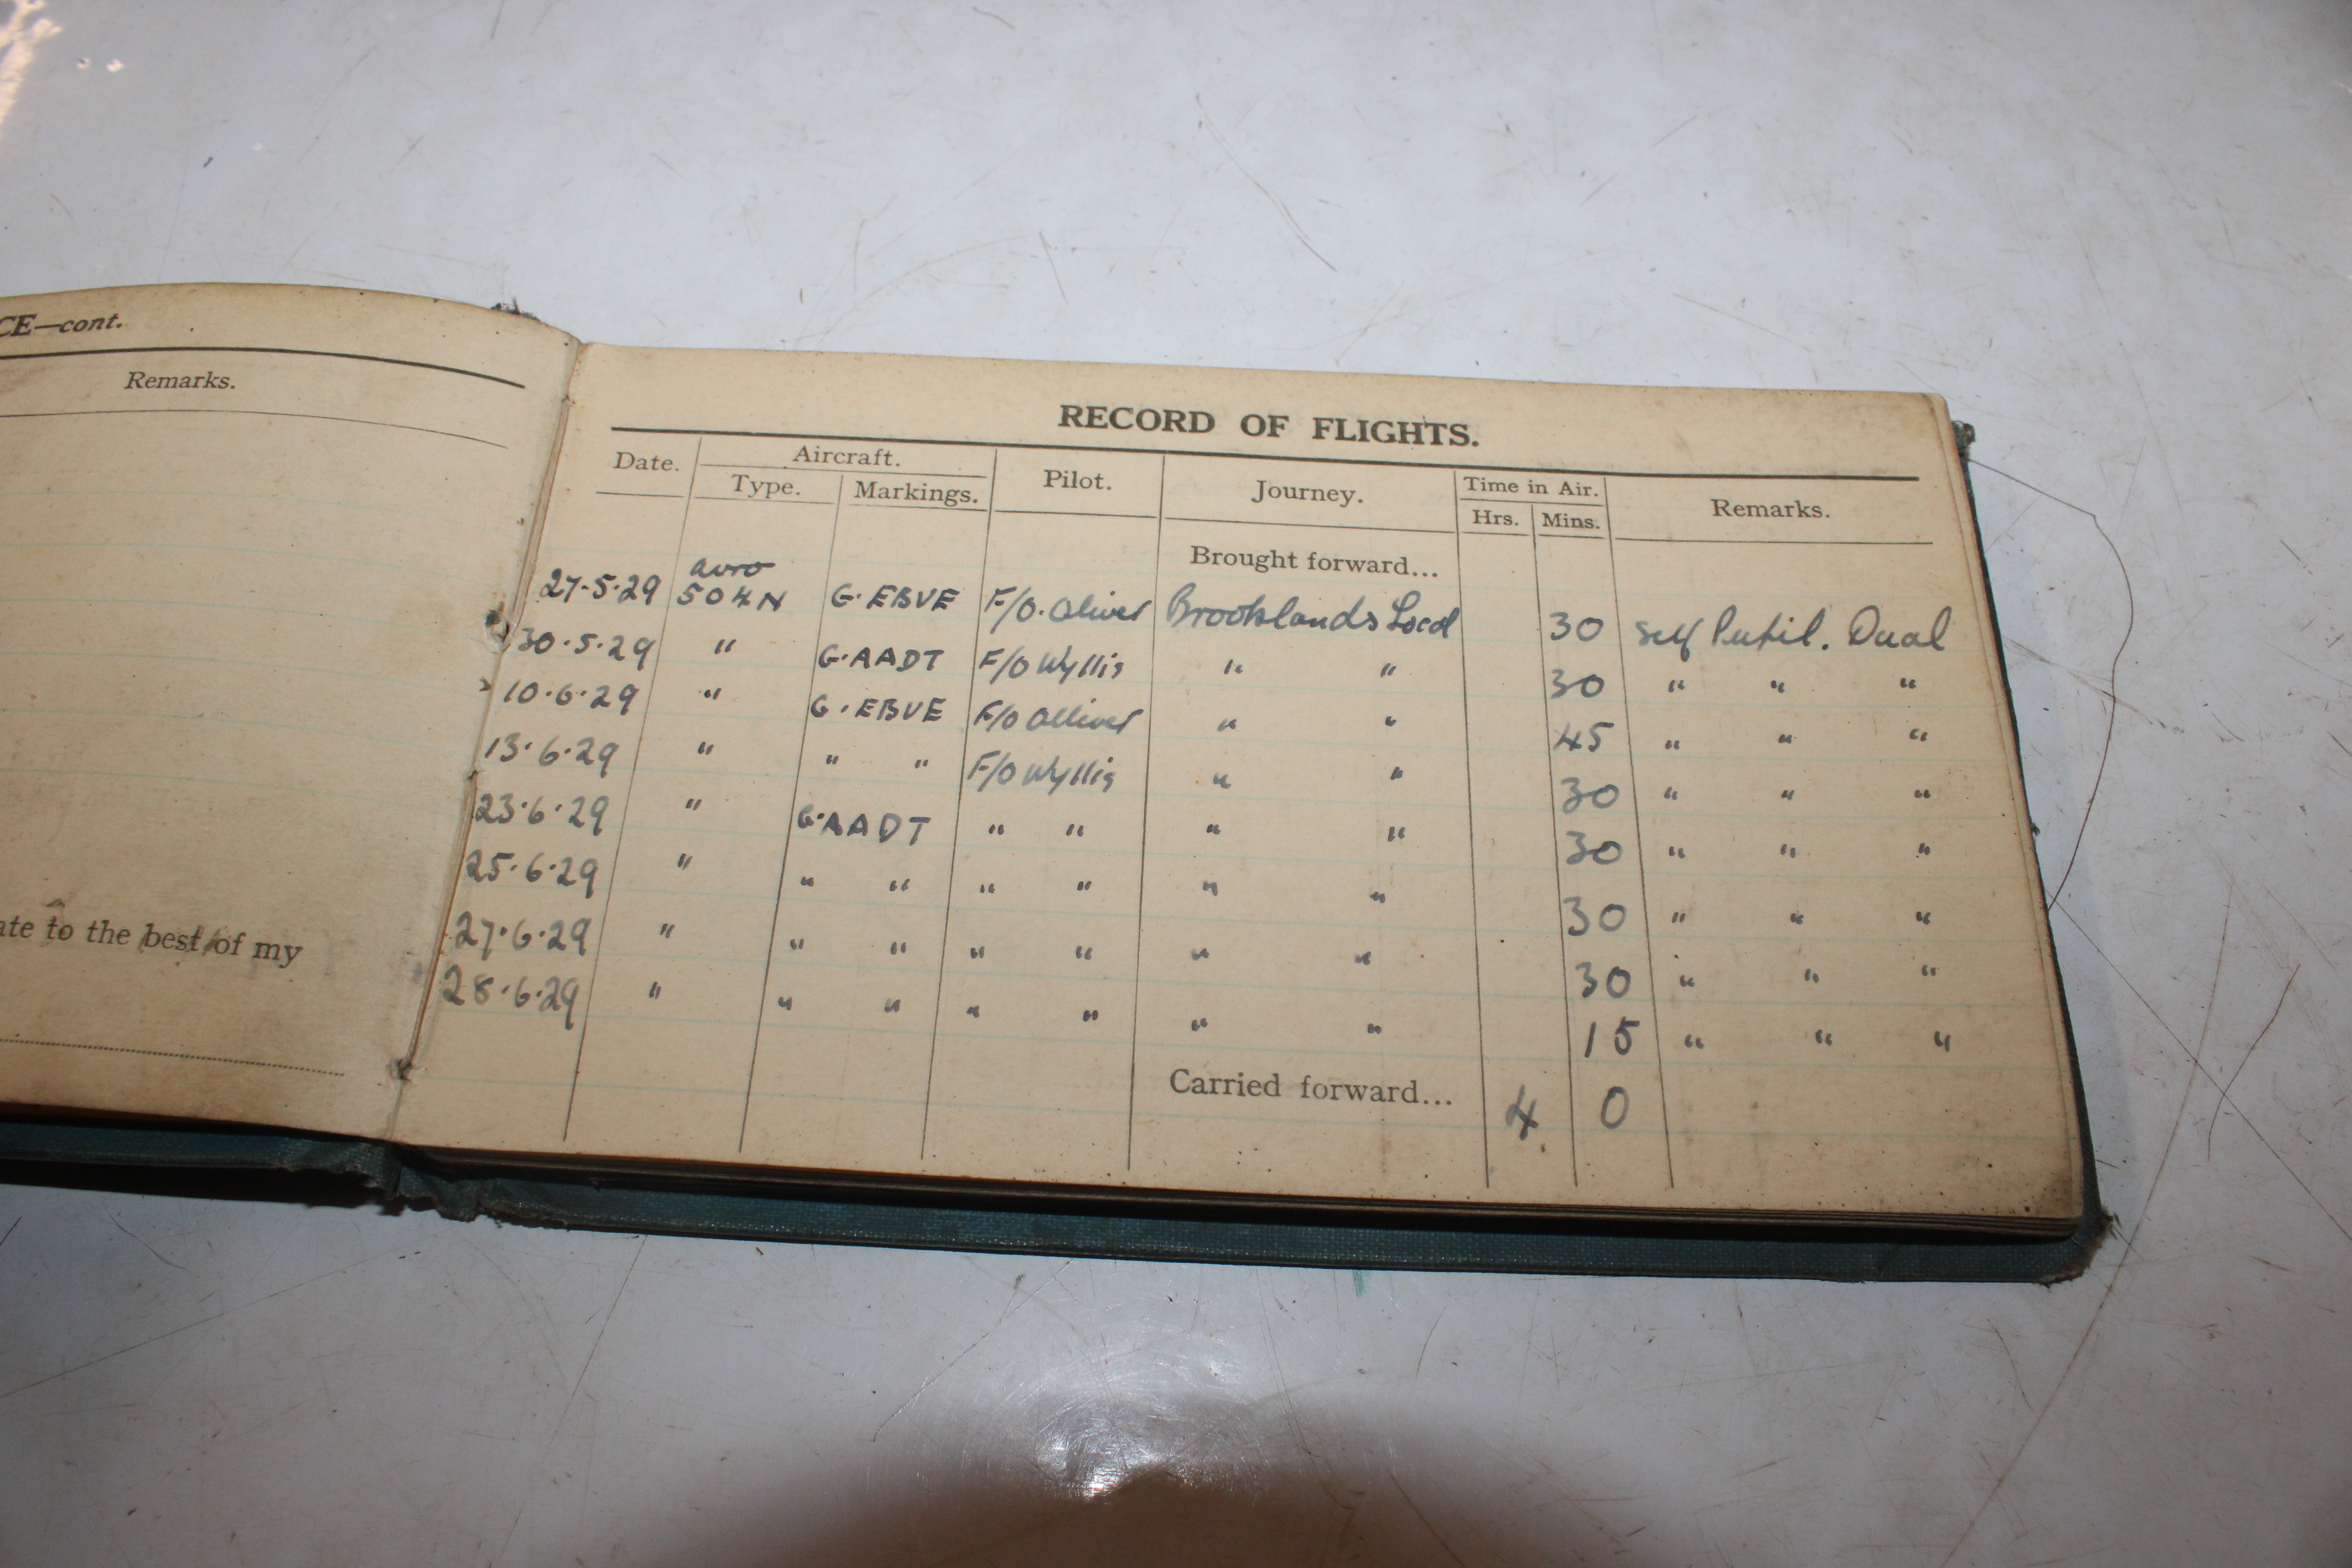 CE—cont.
Remarks.
ate to the best of my
RECORD OF FLIGHTS.
Date. Aircraft. Pilot. Journey. Time in Air. Remarks.
Type. Markings. Hrs. Mins.
Brought forward...
27-5-29 avro 504N G.EBVE F/O. Oliver Brooklands Local 30 Self Pupil. Dual
30.5.29 " G.AADT F/O Wyllis " " 30 " " "
10.6.29 " G.EBVE F/O Olliver " " 45 " " "
13.6.29 " " " F/O Wyllis " " 30 " " "
23.6.29 " G.AADT " " " " 30 " " "
25.6.29 " " " " " " " 30 " " "
27.6.29 " " " " " " " 30 " " "
28.6.29 " " " " " " " 15 " " "
Carried forward... 4. 0